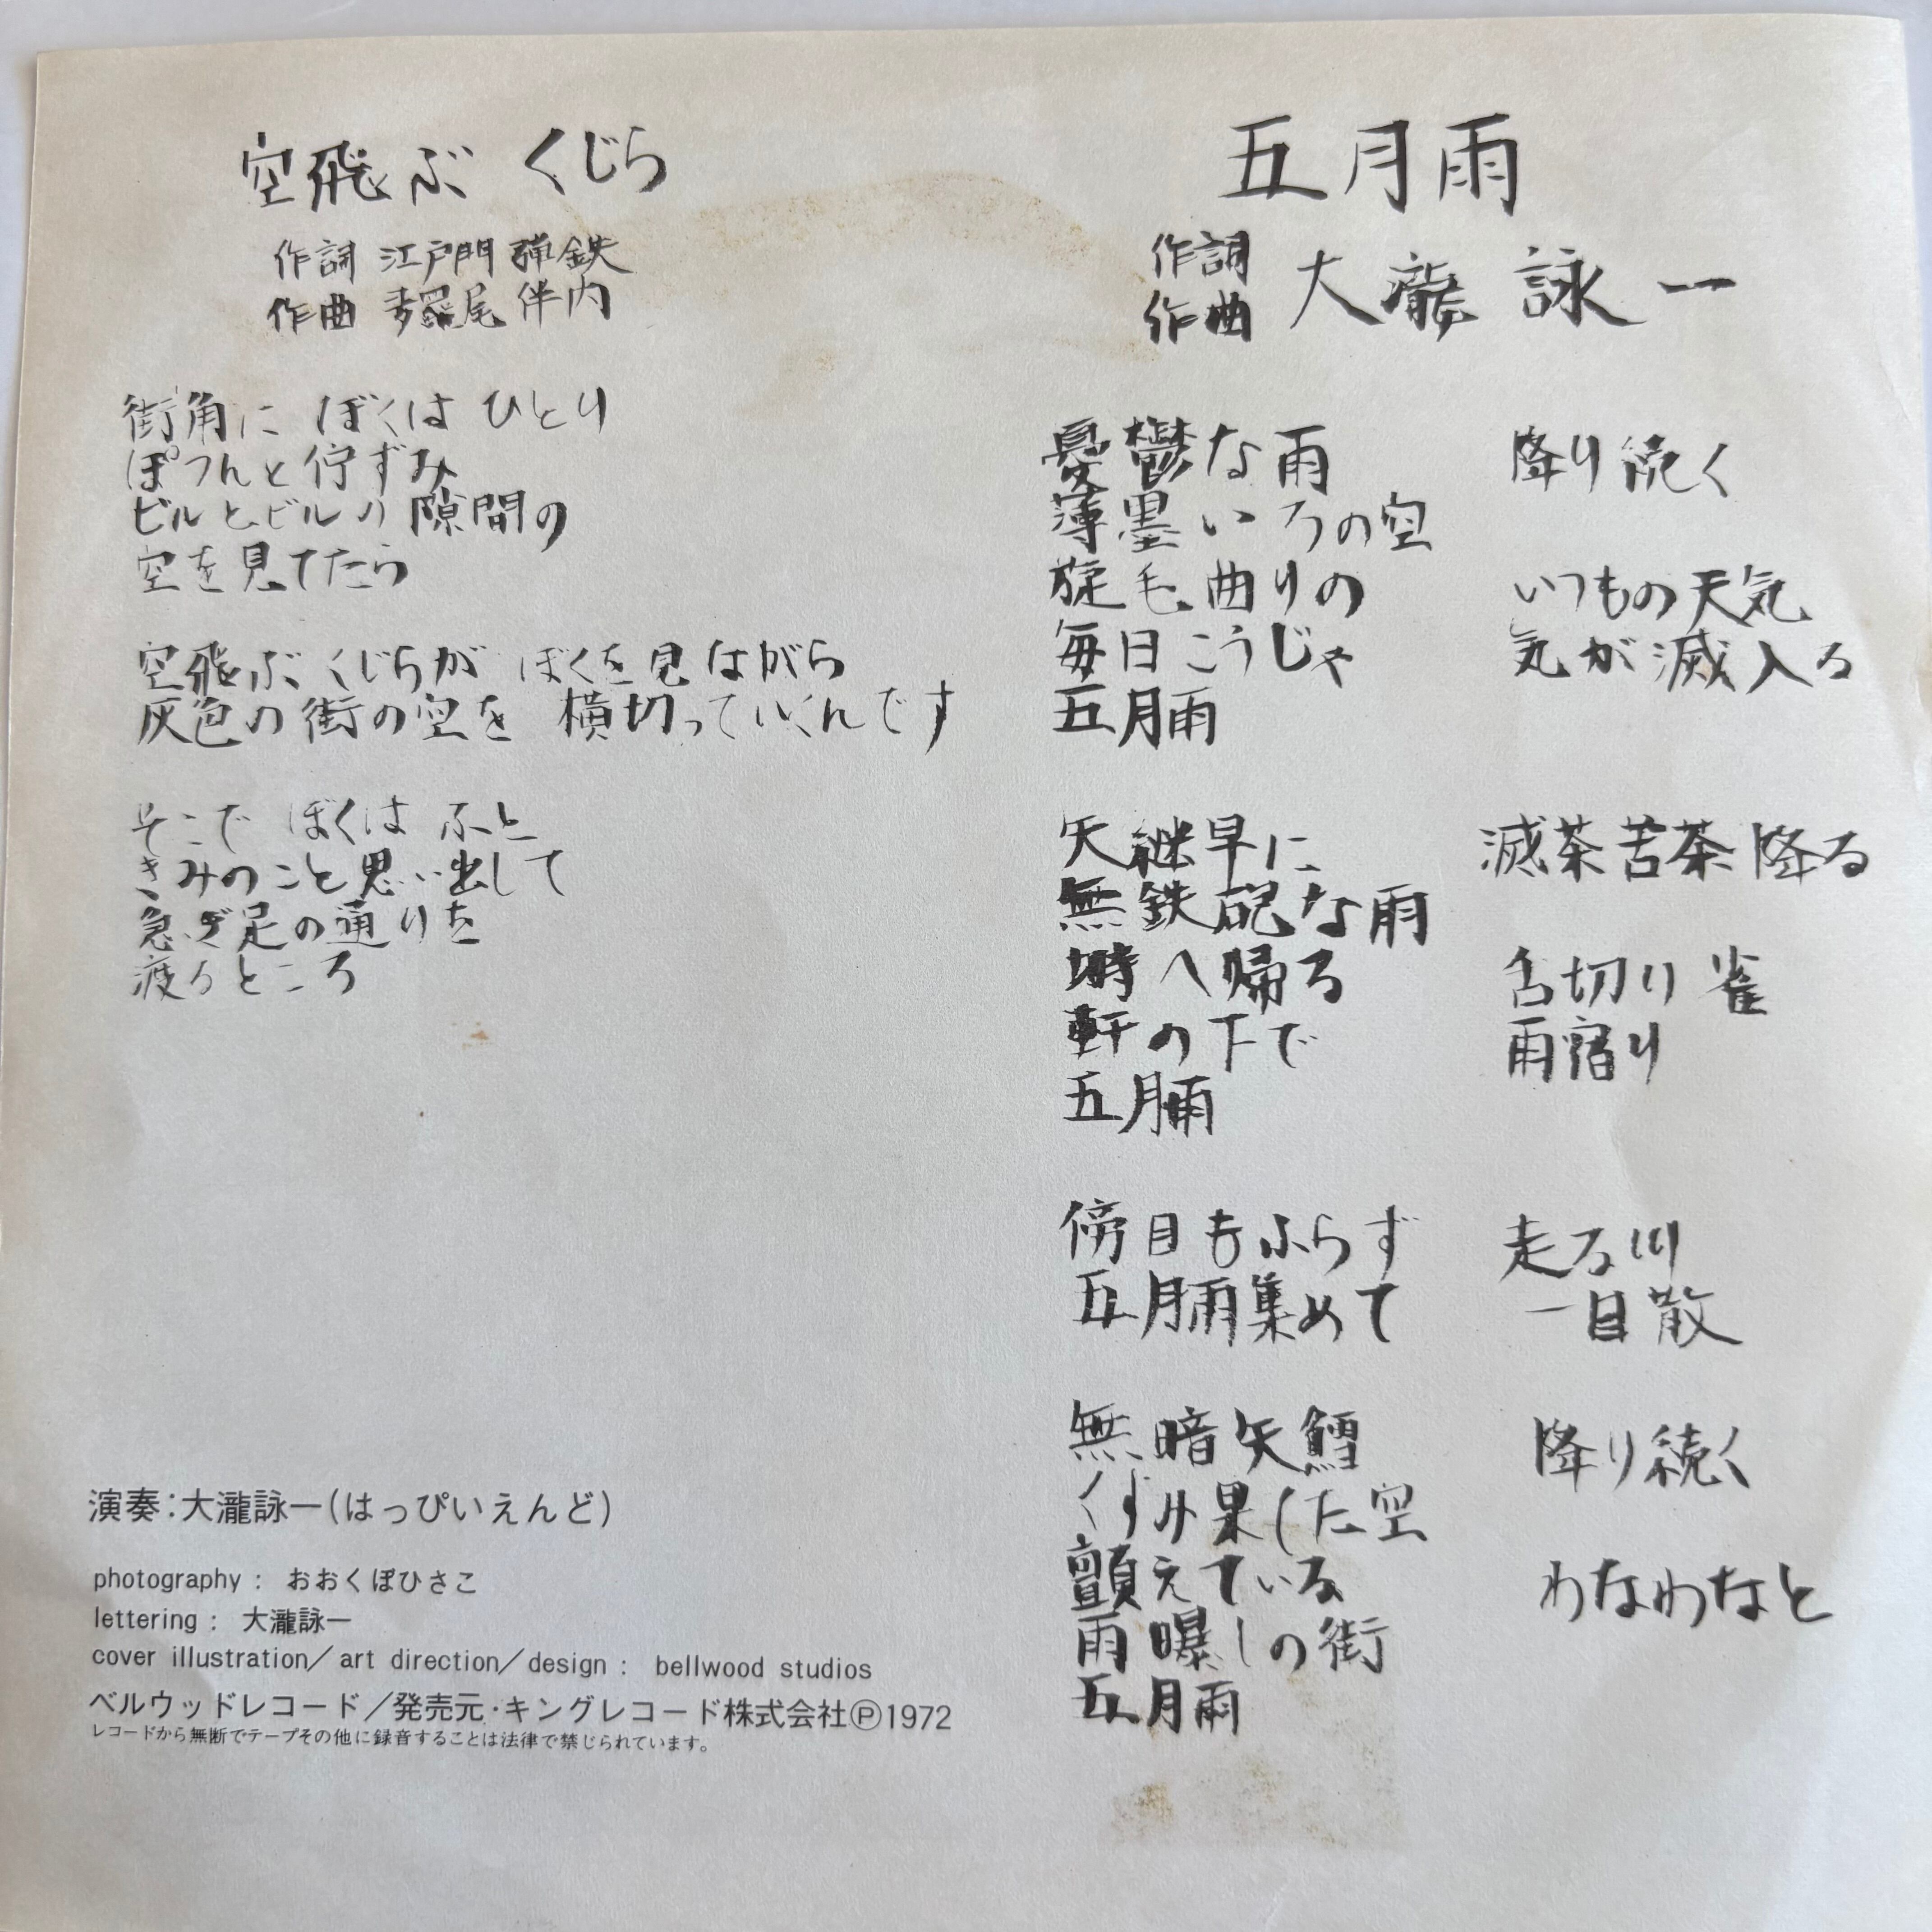 空飛ぶ くじら
作詞 江戸門 弾鉄
作曲 多羅尾 伴内
街角に ぼくは ひとり
ぽつんと 佇ずみ
ビルとビルの 隙間の
空を見てたら
空飛ぶ くじらが ぼくを見ながら
灰色の街の空を 横切っていくんです
そこで ぼくは ふと
きみのこと思い出して
急ぎ足の通りを
渡るところ
演奏:大瀧詠一(はっぴいえんど)
photography : おおくぼひさこ
lettering : 大瀧詠一
cover illustration/art direction/design : bellwood studios
ベルウッドレコード/発売元・キングレコード株式会社Ⓟ1972
レコードから無断でテープその他に録音することは法律で禁じられています。
五月雨
作詞
作曲 大瀧 詠一
憂鬱な雨 降り続く
薄墨いろの空
旋毛曲りの いつもの天気
毎日こうじゃ 気が滅入る
五月雨
矢継早に 滅茶苦茶降る
無鉄砲な雨
塒へ帰る 舌切り雀
軒の下で 雨宿り
五月雨
傍目もふらず 走る川
五月雨集めて 一目散
無暗矢鱈 降り続く
くすみ果した空
顫えている わなわなと
雨曝しの街
五月雨